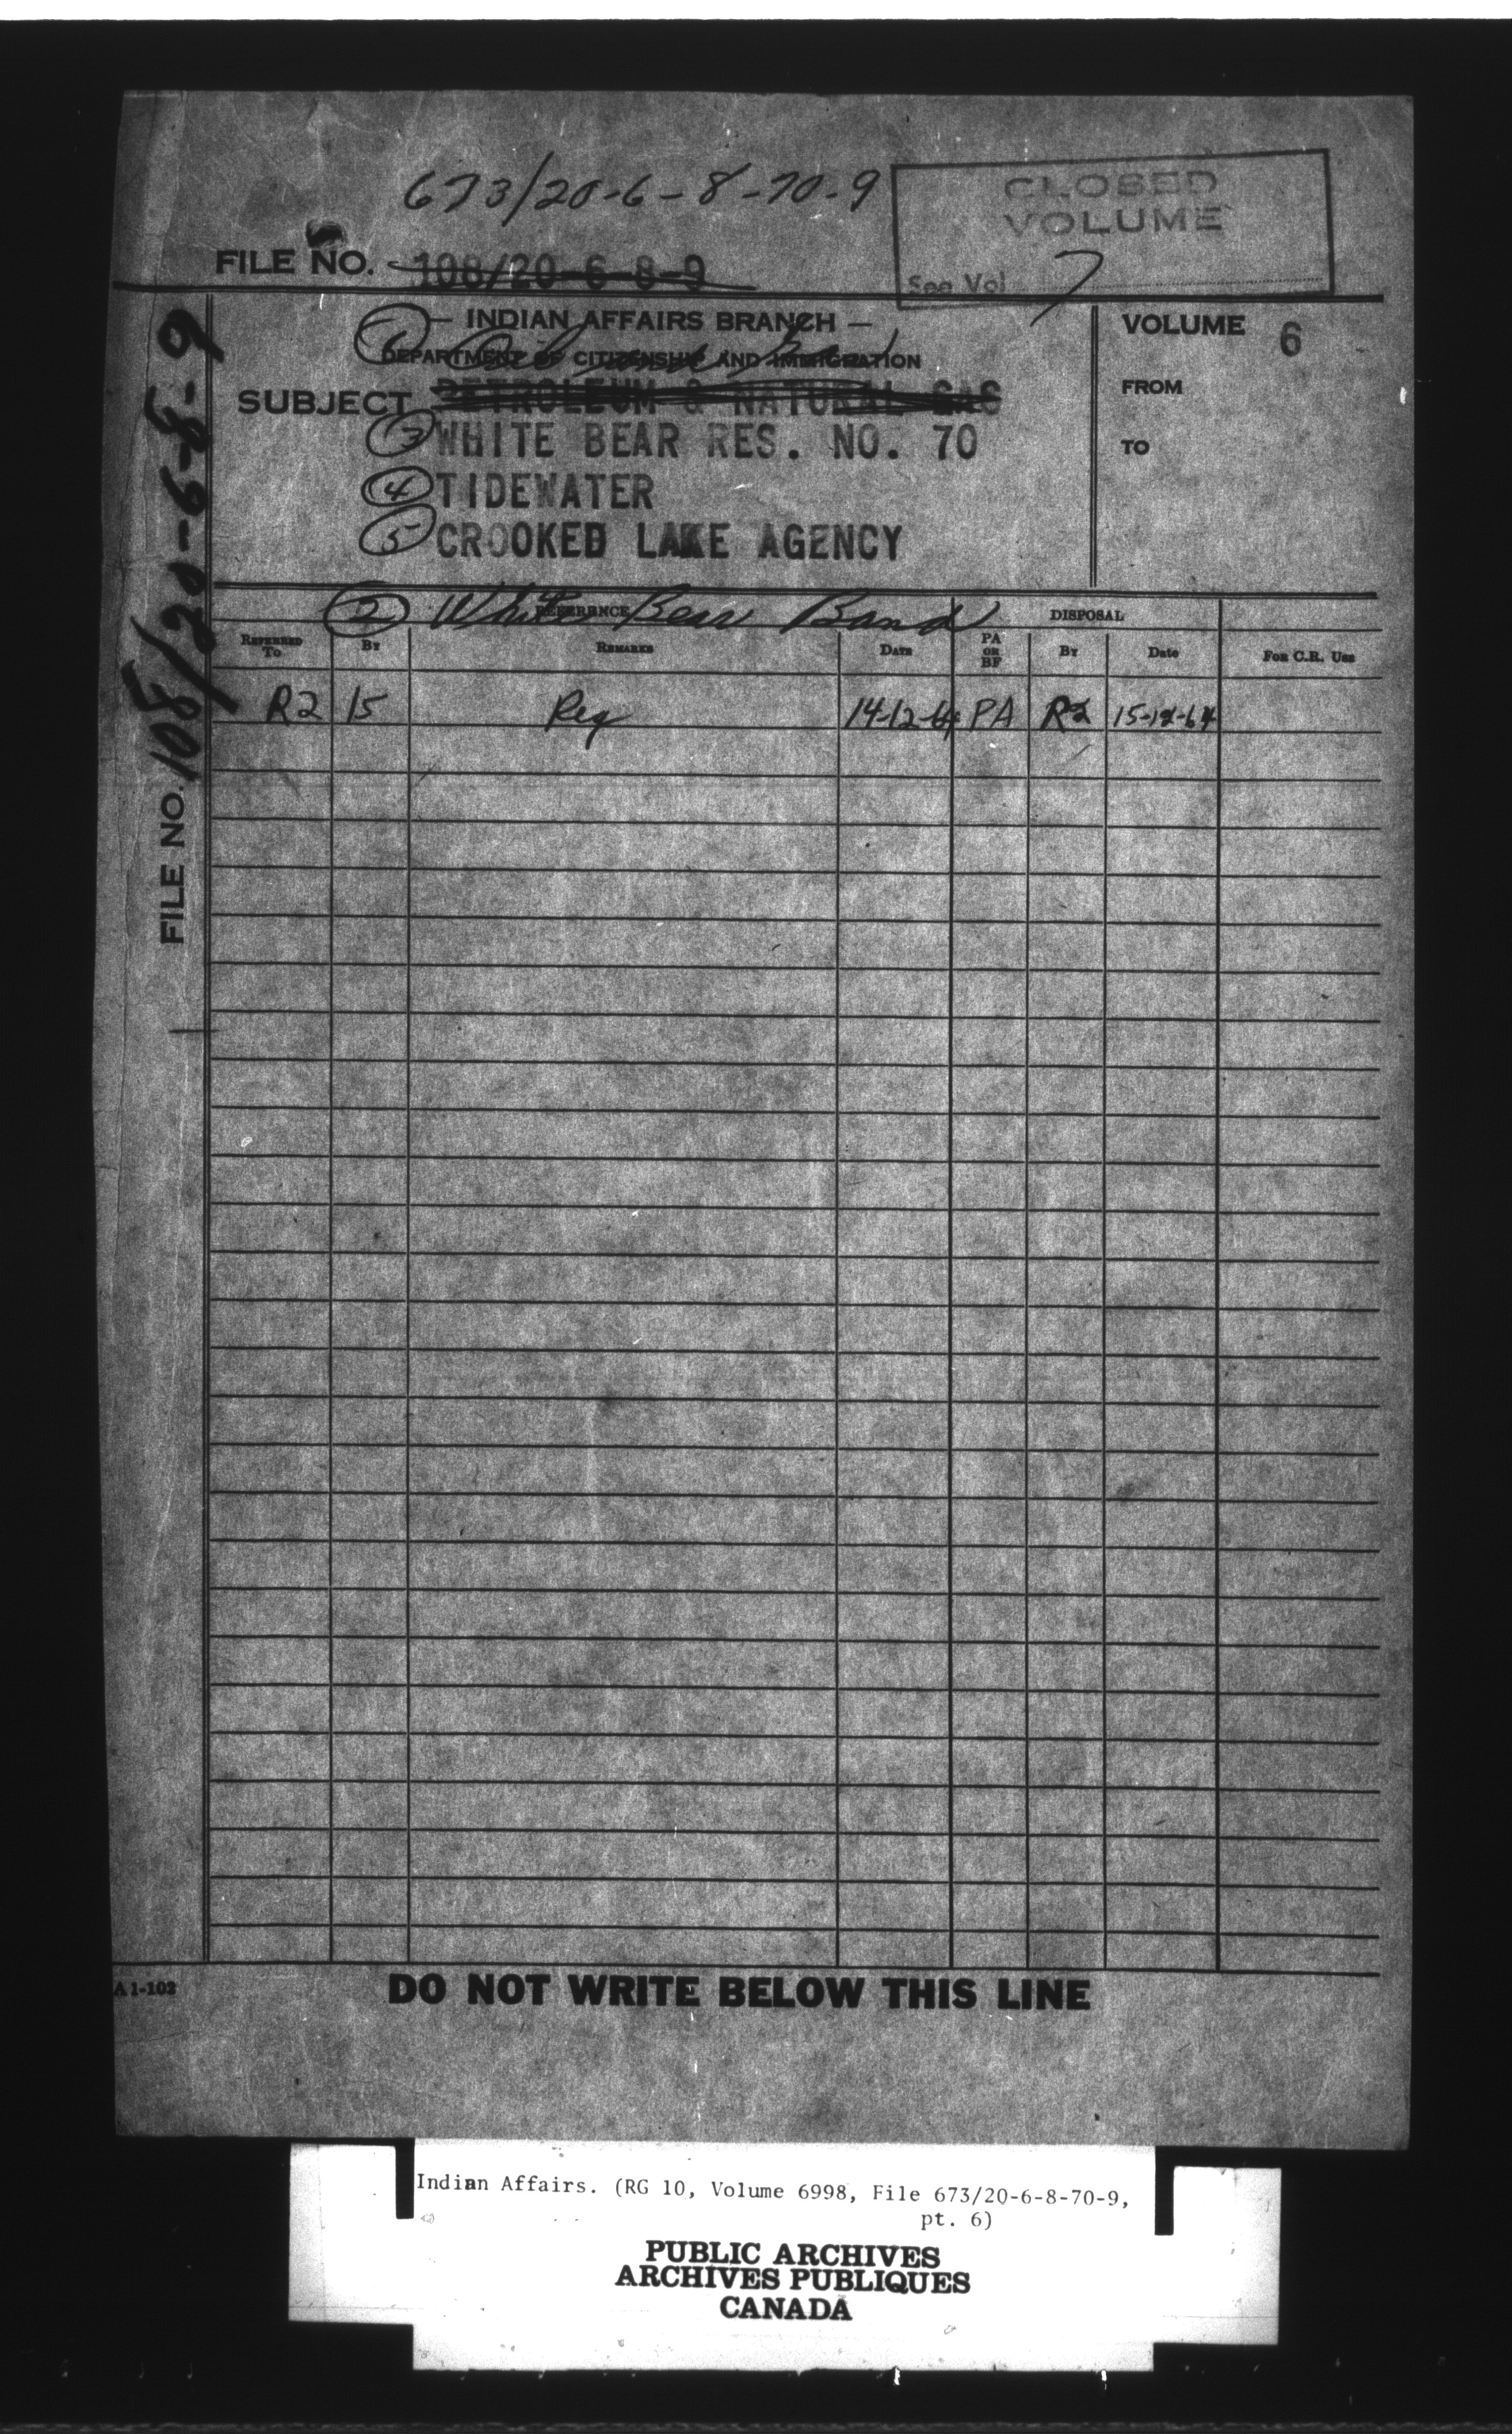 673/20-6-8-70-9
CLOSED
VOLUME
See Vol 7
FILE NO. 108/20-6-8-9
① — INDIAN AFFAIRS BRANCH —
DEPARTMENT OF CITIZENSHIP AND IMMIGRATION
Oil and Gas
SUBJECT PETROLEUM & NATURAL GAS
③ WHITE BEAR RES. NO. 70
④ TIDEWATER
⑤ CROOKED LAKE AGENCY
VOLUME 6
FROM
TO
FILE NO. 108/20-6-8-9
② White Bear Band
REFERENCE DISPOSAL
REFERRED TO BY REMARKS DATE PA OR BF BY Date FOR C.R. USE
R2 15 Reg 14-12-64 PA R2 15-12-64
A 1-102
DO NOT WRITE BELOW THIS LINE
Indian Affairs. (RG 10, Volume 6998, File 673/20-6-8-70-9,
pt. 6)
PUBLIC ARCHIVES
ARCHIVES PUBLIQUES
CANADA